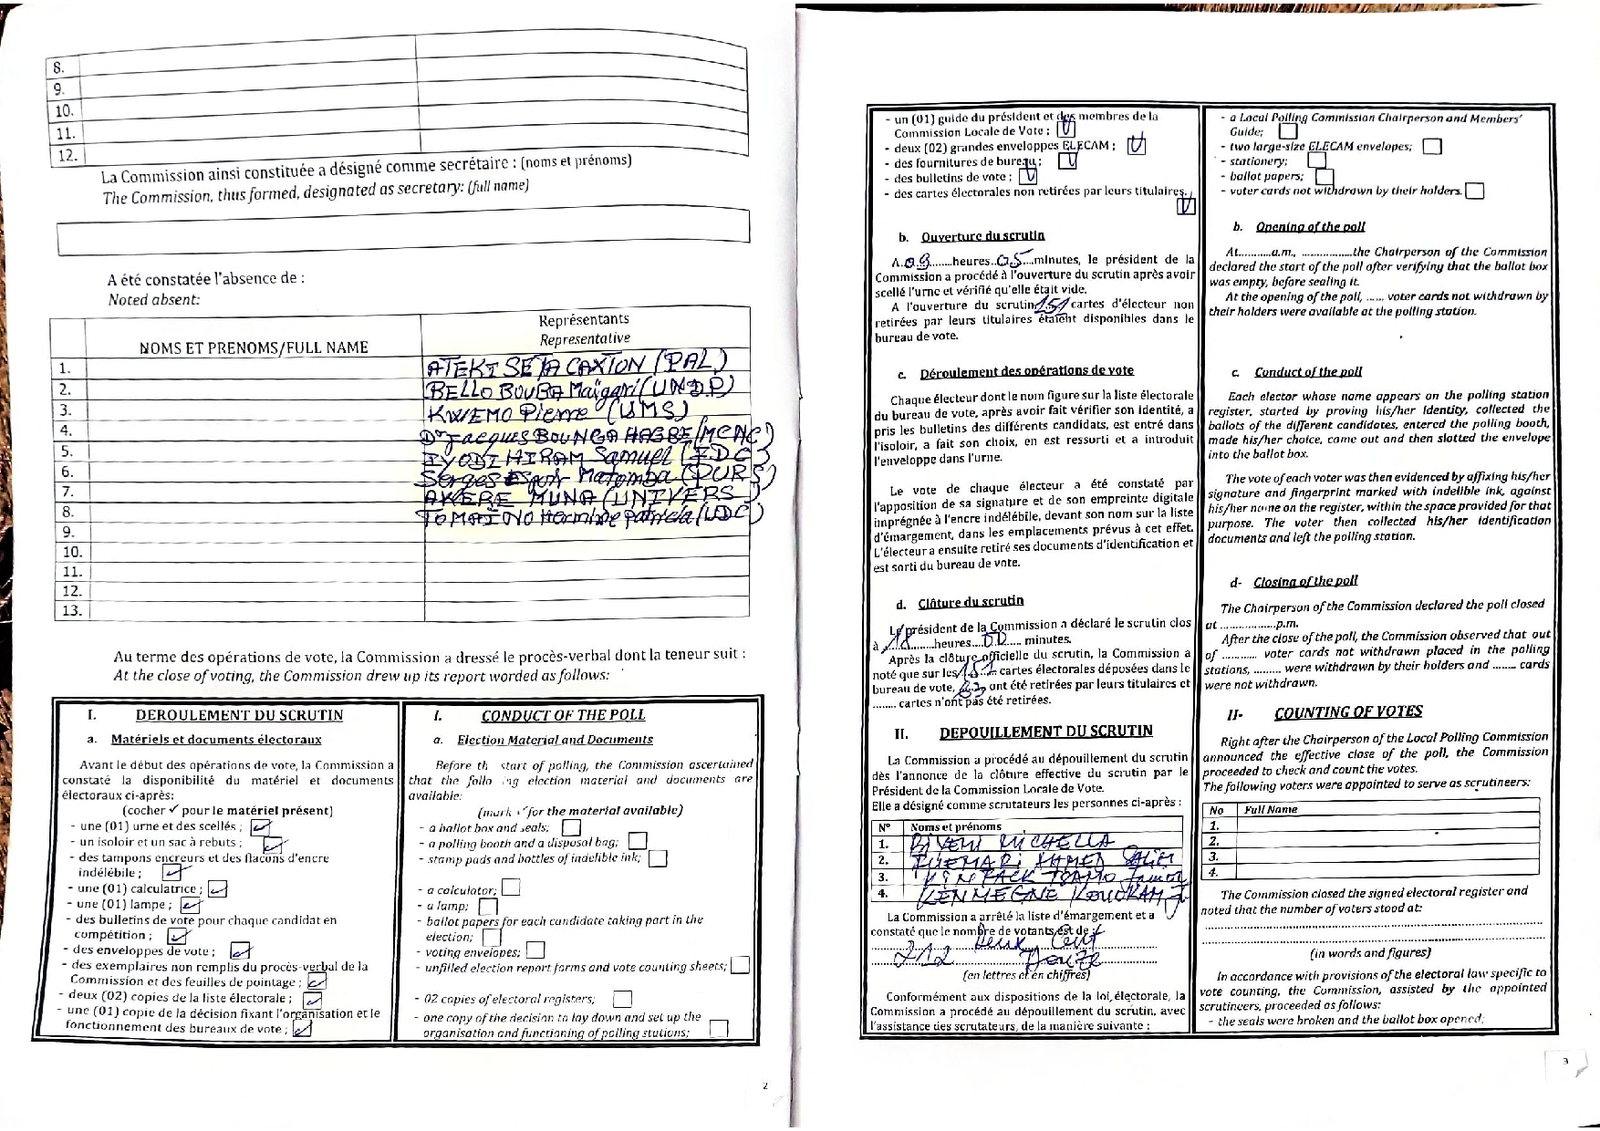 8.
9.
10.
11.
12.
La Commission ainsi constituée a désigné comme secrétaire : (noms et prénoms)
The Commission, thus formed, designated as secretary: (full name)
A été constatée l'absence de :
Noted absent:
NOMS ET PRENOMS/FULL NAME
Représentants
Representative
1. ATEKI SETA CAXTON (PAL)
2. BELLO BOUBA Maïgari (UNDP)
3. KWEMO Pierre (UMS)
4. Dr Jacques BOUNGA HAGBE (MCNC)
5. IYODI HIRAM Samuel (FDC)
6. Serges Espoir Matomba (PURS)
7. AKERE MUNA (UNIVERS)
8. TOMAÏNO Hermine Patricia (UDC)
9.
10.
11.
12.
13.
Au terme des opérations de vote, la Commission a dressé le procès-verbal dont la teneur suit :
At the close of voting, the Commission drew up its report worded as follows:
I. DEROULEMENT DU SCRUTIN
a. Matériels et documents électoraux
Avant le début des opérations de vote, la Commission a
constaté la disponibilité du matériel et documents
électoraux ci-après:
(cocher ✓ pour le matériel présent)
- une (01) urne et des scellés ;
- un isoloir et un sac à rebuts ;
- des tampons encreurs et des flacons d'encre
indélébile ;
- une (01) calculatrice ;
- une (01) lampe ;
- des bulletins de vote pour chaque candidat en
compétition ;
- des enveloppes de vote ;
- des exemplaires non remplis du procès-verbal de la
Commission et des feuilles de pointage ;
- deux (02) copies de la liste électorale ;
- une (01) copie de la décision fixant l'organisation et le
fonctionnement des bureaux de vote ;
I. CONDUCT OF THE POLL
a. Election Material and Documents
Before th start of polling, the Commission ascertained
that the follo ng election material and documents are
available:
(mark ✓ for the material available)
- a ballot box and seals;
- a polling booth and a disposal bag;
- stamp pads and bottles of indelible ink;
- a calculator;
- a lamp;
- ballot papers for each candidate taking part in the
election;
- voting envelopes;
- unfilled election report forms and vote counting sheets;
- 02 copies of electoral registers;
- one copy of the decision to lay down and set up the
organisation and functioning of polling stations;
2
- un (01) guide du président et des membres de la
Commission Locale de Vote ;
- deux (02) grandes enveloppes ELECAM ;
- des fournitures de bureau ;
- des bulletins de vote ;
- des cartes électorales non retirées par leurs titulaires.
b. Ouverture du scrutin
A 08 heures 05 minutes, le président de la
Commission a procédé à l'ouverture du scrutin après avoir
scellé l'urne et vérifié qu'elle était vide.
A l'ouverture du scrutin 151 cartes d'électeur non
retirées par leurs titulaires étaient disponibles dans le
bureau de vote.
c. Déroulement des opérations de vote
Chaque électeur dont le nom figure sur la liste électorale
du bureau de vote, après avoir fait vérifier son identité, a
pris les bulletins des différents candidats, est entré dans
l'isoloir, a fait son choix, en est ressorti et a introduit
l'enveloppe dans l'urne.
Le vote de chaque électeur a été constaté par
l'apposition de sa signature et de son empreinte digitale
imprégnée à l'encre indélébile, devant son nom sur la liste
d'émargement, dans les emplacements prévus à cet effet.
L'électeur a ensuite retiré ses documents d'identification et
est sorti du bureau de vote.
d. Clôture du scrutin
Le président de la Commission a déclaré le scrutin clos
à 18 heures 00 minutes.
Après la clôture officielle du scrutin, la Commission a
noté que sur les 151 cartes électorales déposées dans le
bureau de vote, ont été retirées par leurs titulaires et
........ cartes n'ont pas été retirées.
II. DEPOUILLEMENT DU SCRUTIN
La Commission a procédé au dépouillement du scrutin
dès l'annonce de la clôture effective du scrutin par le
Président de la Commission Locale de Vote.
Elle a désigné comme scrutateurs les personnes ci-après :
N° Noms et prénoms
1. MICHELLA
2. AHMED
3. TSAMO
4. KENMEGNE
La Commission a arrêté la liste d'émargement et a
constaté que le nombre de votants est de :
Deux Cent
212 Douze
(en lettres et en chiffres)
Conformément aux dispositions de la loi électorale, la
Commission a procédé au dépouillement du scrutin, avec
l'assistance des scrutateurs, de la manière suivante :
- a Local Polling Commission Chairperson and Members'
Guide;
- two large-size ELECAM envelopes;
- stationery;
- ballot papers;
- voter cards not withdrawn by their holders.
b. Opening of the poll
At..........a.m., ................the Chairperson of the Commission
declared the start of the poll after verifying that the ballot box
was empty, before sealing it.
At the opening of the poll, ...... voter cards not withdrawn by
their holders were available at the polling station.
c. Conduct of the poll
Each elector whose name appears on the polling station
register, started by proving his/her identity, collected the
ballots of the different candidates, entered the polling booth,
made his/her choice, came out and then slotted the envelope
into the ballot box.
The vote of each voter was then evidenced by affixing his/her
signature and fingerprint marked with indelible ink, against
his/her name on the register, within the space provided for that
purpose. The voter then collected his/her identification
documents and left the polling station.
d- Closing of the poll
The Chairperson of the Commission declared the poll closed
at ..................p.m.
After the close of the poll, the Commission observed that out
of ........... voter cards not withdrawn placed in the polling
stations, ........ were withdrawn by their holders and ....... cards
were not withdrawn.
II- COUNTING OF VOTES
Right after the Chairperson of the Local Polling Commission
announced the effective close of the poll, the Commission
proceeded to check and count the votes.
The following voters were appointed to serve as scrutineers:
No Full Name
1.
2.
3.
4.
The Commission closed the signed electoral register and
noted that the number of voters stood at:
(in words and figures)
In accordance with provisions of the electoral law specific to
vote counting, the Commission, assisted by the appointed
scrutineers, proceeded as follows:
- the seals were broken and the ballot box opened;
3